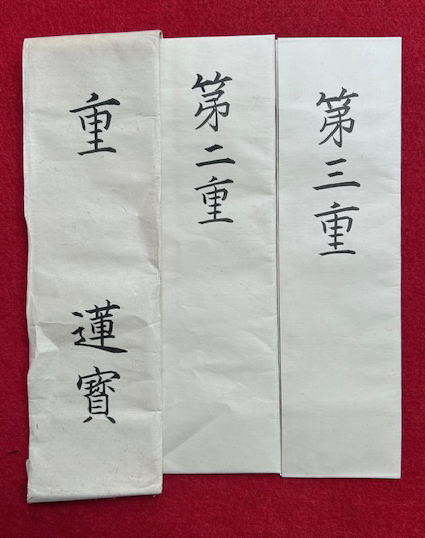 第三重
第二重
重　蓮寳